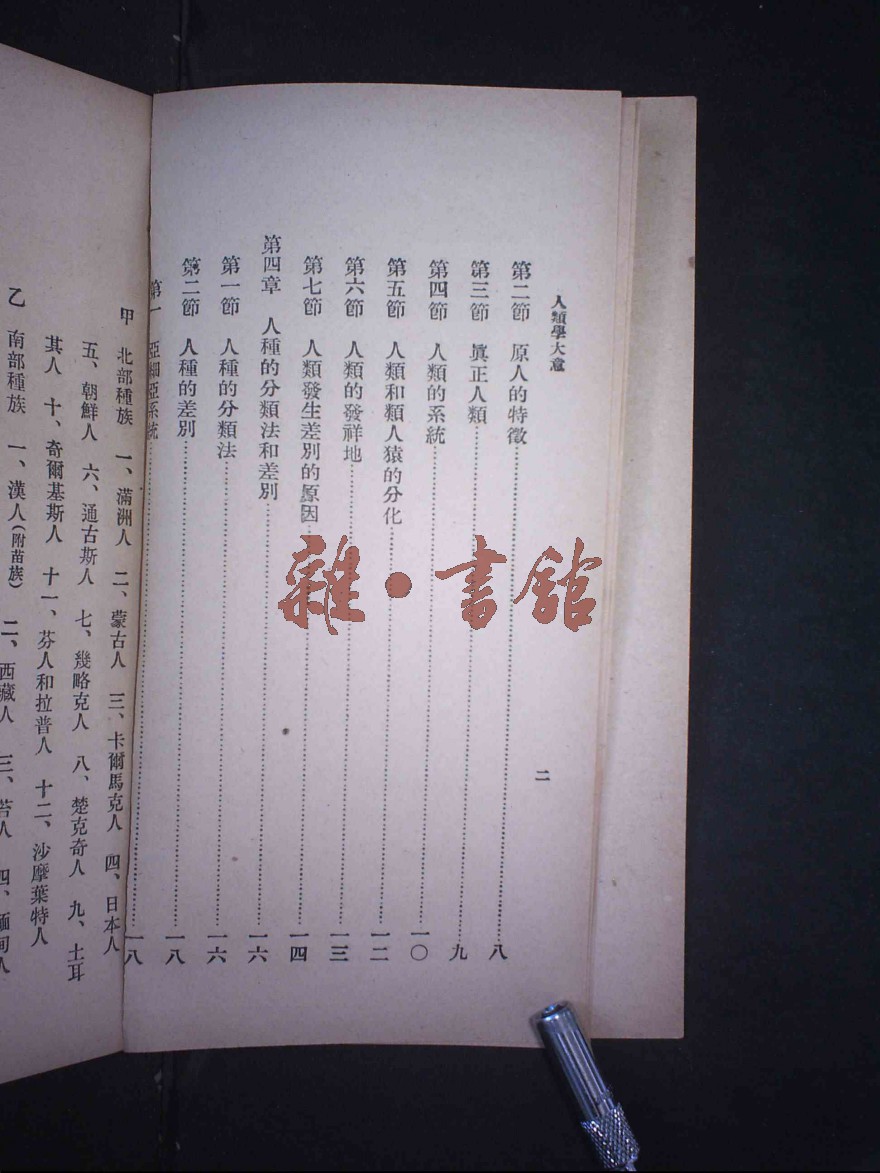 人類學大意
二
第二節 原人的特徵……八
第三節 眞正人類……九
第四節 人類的系統……一〇
第五節 人類和類人猿的分化……一二
第六節 人類的發祥地……一三
第七節 人類發生差別的原因……一四
第四章 人種的分類法和差別……一六
第一節 人種的分類法……一六
第二節 人種的差別……一八
第一 亞細亞系統……一八
甲 北部種族 一、滿洲人 二、蒙古人 三、卡爾馬克人 四、日本人
五、朝鮮人 六、通古斯人 七、幾略克人 八、楚克奇人 九、土耳
其人 十、奇爾基斯人 十一、芬人和拉普人 十二、沙摩葉特人
乙 南部種族 一、漢人(附苗族) 二、西藏人 三、苔人 四、緬甸人
雜·書館